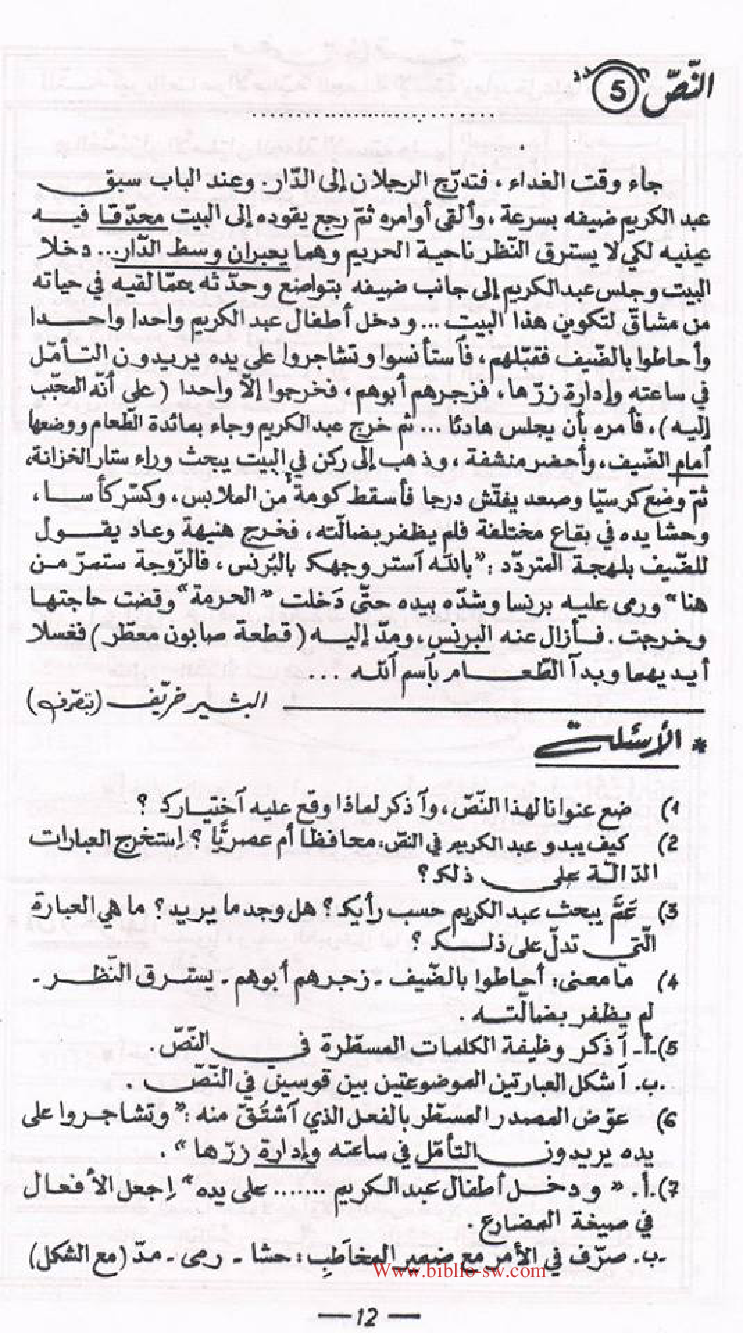 النّصّ 5
جاء وقت الغداء ، فتدرّج الرجلان إلى الدّار. وعند الباب سبق
عبد الكريم ضيفه بسرعة ، وألقى أوامره ثمّ رجع يقوده إلى البيت محدّقا فيه
عينيه لكي لا يسترق النّظر ناحية الحريم وهما يعبران وسط الدّار... دخلا
البيت وجلس عبد الكريم إلى جانب ضيفه بتواضع وحدّثه بعمّا لقيه في حياته
من مشاقّ لتكوين هذا البيت ... ودخل أطفال عبد الكريم واحدا واحدا
وأحاطوا بالضّيف فقبّلهم ، فآستأنسوا وتشاجروا على يده يريدون التأمّل
في ساعته وإدارة زرّها ، فزجرهم أبوهم ، فخرجوا إلاّ واحدا ( على أنّه المحبّب
إليه ) ، فأمره بأن يجلس هادئا ... ثم خرج عبد الكريم وجاء بمائدة الطّعام ووضعها
أمام الضّيف ، وأحضر منشفة ، وذهب إلى ركن في البيت يبحث وراء ستار الخزانة،
ثمّ وضع كرسيّا وصعد يفتّش درجا فأسقط كومة من الملابس ، وكسّر كأسا ،
وحشا يده في بقاع مختلفة فلم يظفر بضالّته ، فخرج هنيهة وعاد يقول
للضّيف بلهجة المتردّد : "بالله آستر وجهك بالبُرنس ، فالزّوجة ستمرّ من
هنا" ورمى عليه برنسا وشدّه بيده حتّى دَخلت "الحرمة" وقضت حاجتها
وخرجت. فأزال عنه البرنس ، ومدّ إليه ( قطعة صابون معطّر ) فغسلا
أيديهما وبدآ الطّعام بآسم الله ...
البشير خريّف (بتصرّف)
* الأسئلة
1) ضع عنوانا لهذا النّصّ ، وآذكر لماذا وقع عليه آختيارك ؟
2) كيف يبدو عبد الكريم في النصّ : محافظا أم عصريًّا ؟ إستخرج العبارات
الدّالّة على ذلك ؟
3) عَمَّ يبحث عبد الكريم حسب رأيك ؟ هل وجد ما يريد ؟ ما هي العبارة
الّتي تدلّ على ذلك ؟
4) ما معنى : أحاطوا بالضّيف - زجرهم أبوهم - يسترق النّظر -
لم يظفر بضالّته .
5) أ. آذكر وظيفة الكلمات المسطّرة في النّصّ .
ب. آشكل العبارتين الموضوعتين بين قوسين في النّصّ .
6) عوّض المصدر المسطّر بالفعل الذي آشتُقّ منه : "وتشاجروا على
يده يريدون التأمّل في ساعته وإدارة زرّها" .
7) أ. "ودخل أطفال عبد الكريم ....... على يده" إجعل الأفعال
في صيغة المضارع .
ب. صرّف في الأمر مع ضمير المخاطَبِ : حشا - رمى - مدّ (مع الشكل)
Www.biblio-sw.com
— 12 —